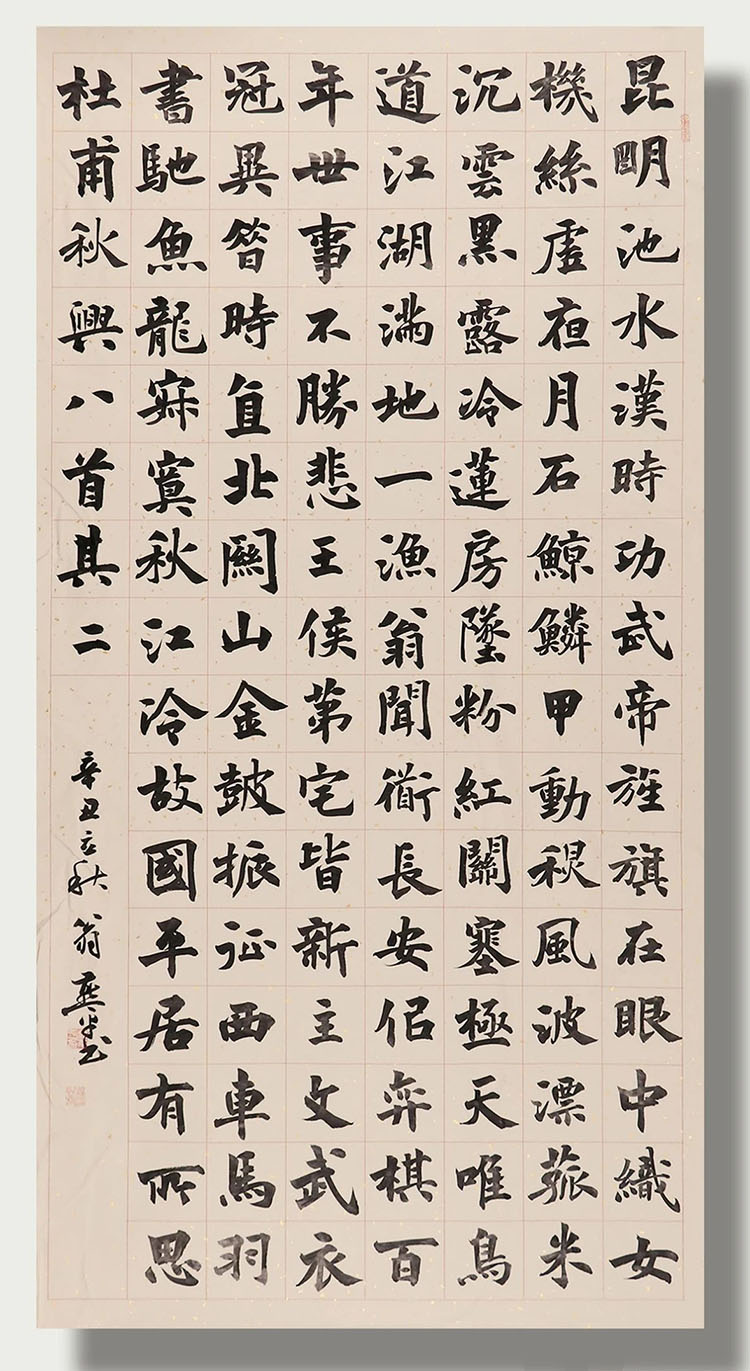 昆朙池水漢時功武帝旌旗在眼中織女
機絲虛夜月石鯨鱗甲動秋風波漂菰米
沉雲黑露冷蓮房墜粉紅關塞極天唯鳥
道江湖滿地一漁翁聞衜長安佀弈棋百
年世事不勝悲王侯第宅皆新主文武衣
冠異昔時直北關山金鼓振征西車馬羽
書馳魚龍寂寞秋江冷故國平居有所思
杜甫秋興八首其二
辛丑立秋翁